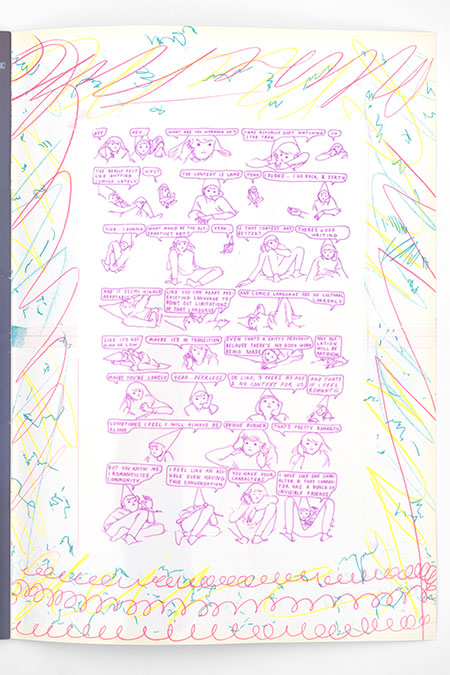 HEY
HEY.
WHAT ARE YOU WORKING ON?
I WAS ACTUALLY JUST WATCHING
STAR TREK
OH
I'VE REALLY FELT
LIKE QUITTING
COMICS LATELY
WHY?
THE CONTEXT IS LAME
YEAH
I GO BACK & FORTH
WHAT WOULD BE THE ALT.
YEAH
IS THAT CONTEXT ANY
BETTER?
THERE'S GOOD
WRITING
AND IT SEEMS HIGHLY
ADAPTABLE
LIKE YOU CAN ADAPT ANY
EXISTING LANGUAGE TO
POINT OUT LIMITATIONS
OF THAT LANGUAGE
AND COMICS LANGUAGE HAS NO CULTURAL
CURRENCY
LIKE IT'S NOT
HIGH OR LOW
MAYBE IT'S IN TRANSITION
EVEN THAT'S A SHITTY PROSPECT
BECAUSE THERE'S NO GOOD WORK
BEING MADE
WILL BE
MAYBE YOU'RE LONELY
YEAH. PEERLESS
OR LIKE, 3 PEERS MY AGE
& NO CONTEXT FOR US
AND THAT'S
IF I FEEL
ROMANTIC
SOMETIMES I FEEL I WILL ALWAYS BE
ALONE
BRIDGE BURNER
THAT'S PRETTY ROMANTIC
BUT YOU KNOW ME
I ROMANTICIZE
COMMUNITY
I FEEL LIKE AN ASS
HOLE EVEN HAVING
THIS CONVERSATION
YOU HAVE YOUR
CHARACTERS
I HAVE LIKE ONE CHAR
ACTER & THAT CHARAC
TER HAS A BUNCH OF
INVISIBLE FRIENDS